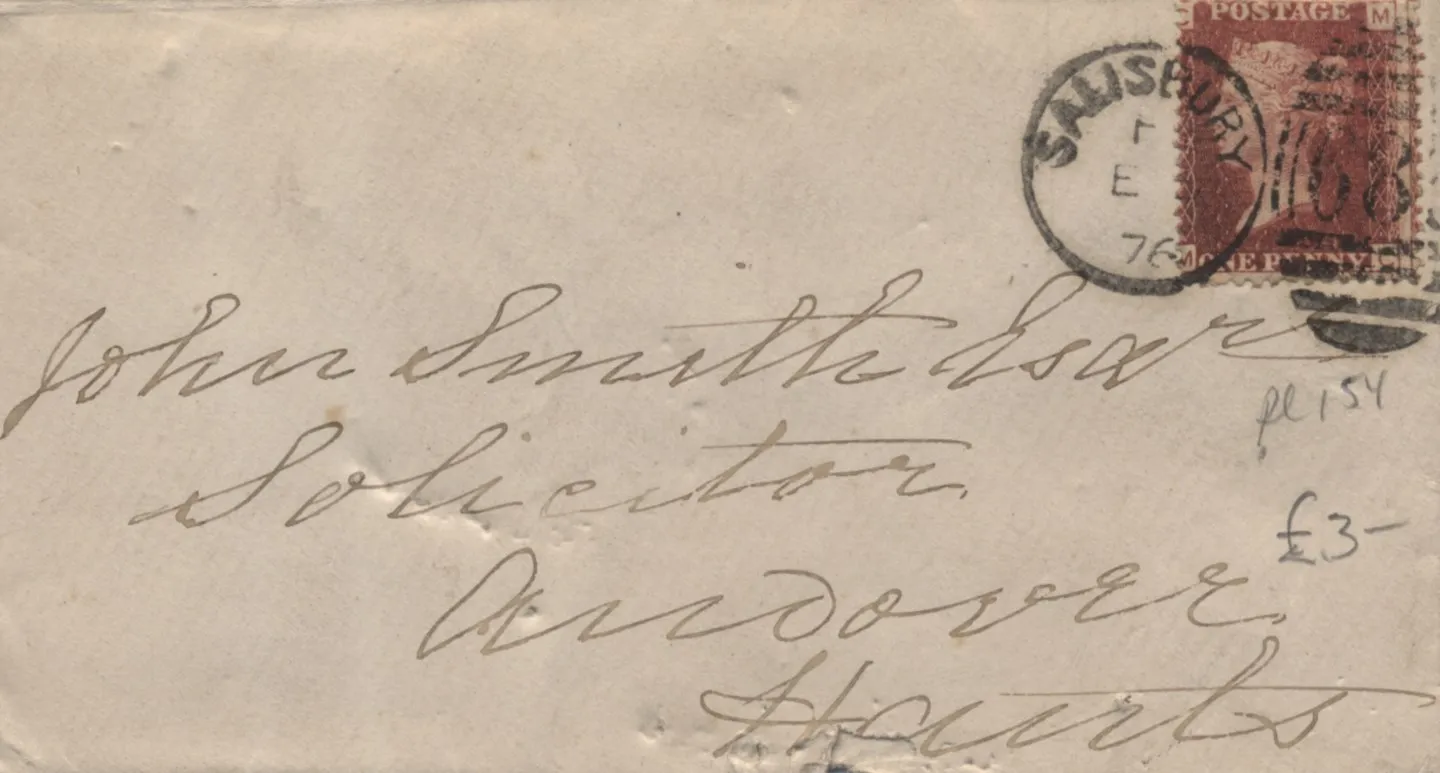 POSTAGE M
SALISBURY
E
76
ONE PENNY
John Smith Esqr
pl 154
Solicitor
£3-
Andover
Hants